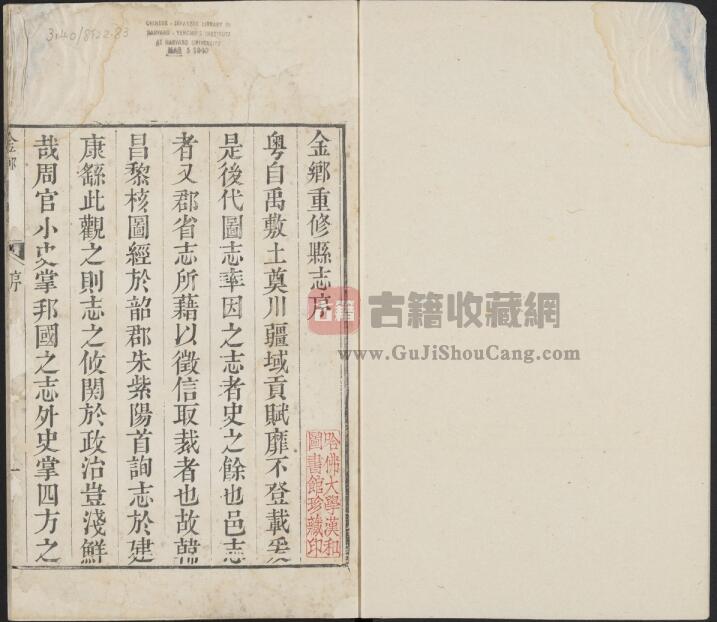 3140/8122.83
CHINESE - JAPANESE LIBRARY OF
HARVARD - YENCHING INSTITUTE
AT HARVARD UNIVERSITY
MAR 5 1940
金鄉重修縣志序
粤自禹敷土奠川疆域貢賦靡不登載爰
是後代圖志率因之志者史之餘也邑志
者又郡省志所藉以徵信取裁者也故韓
昌黎核圖經於韶郡朱紫陽首詢志於建
康繇此觀之則志之攸関於政治豈淺鮮
哉周官小史掌邦國之志外史掌四方之
金鄉
序
一
哈佛大學漢和
圖書館珍藏印
古籍
古籍收藏網
www.GuJiShouCang.com